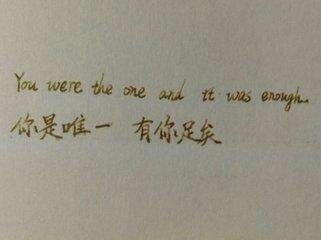 You were the one and it was enough.
你是唯一 有你足矣